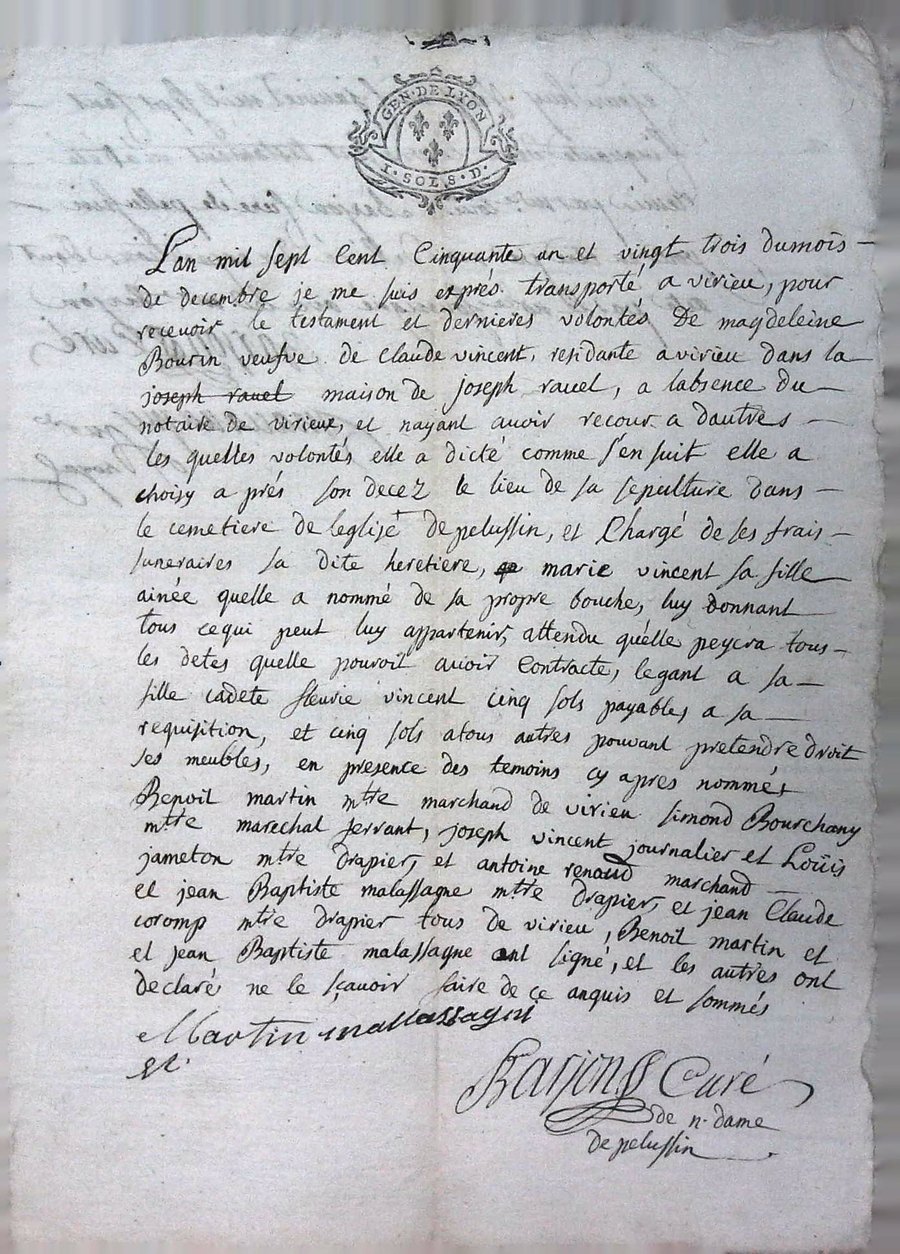 GEN · DE LYON
I · SOLS · D ·
Lan mil sept Cent Cinquante un et vingt trois dumois
de decembre je me suis exprés transporté a virieu, pour
recevoir le testament et dernieres volontés De magdeleine
Bourin veufve de Claude vincent, residante a virieu dans la
joseph ravel maison de joseph ravel, a labsence du
notaire de virieux, et nayant avoir recour a dautres
les quelles volontés elle a dicté comme s'en suit elle a
choisy a prés son decez le lieu de sa sepulture dans
le cemetiere de leglise de pelussin, et Chargé de ses frais
funeraires sa dite heretiere, marie vincent sa fille
ainée quelle a nommé de sa propre bouche, luy donnant
tous cequi peut luy appartenir, attendu qu'elle peyera tous
les detes quelle pouroit avoir Contracte, legant a sa
fille cadete fleurie vincent cinq sols payables a sa
requisition, et cinq sols atous autres pouvant pretendre droit
ses meubles, en presence des temoins cy apres nommés
Benoit martin mtre marchand de virieu simond Bourchany
mtre marechal ferrant, joseph vincent journalier et Loüis
jameton mtre drapier, et antoine renaud marchand
et jean Baptiste malassagne mtre drapier, et jean Claude
coromp mtre drapier tous de virieu, Benoit martin et
et jean Baptiste malassagne ont signé, et les autres ont
declarés ne le sçavoir faire de ce anquis et sommés
Martin mallassagni
Barjon Curé
de n· dame
de pelussin